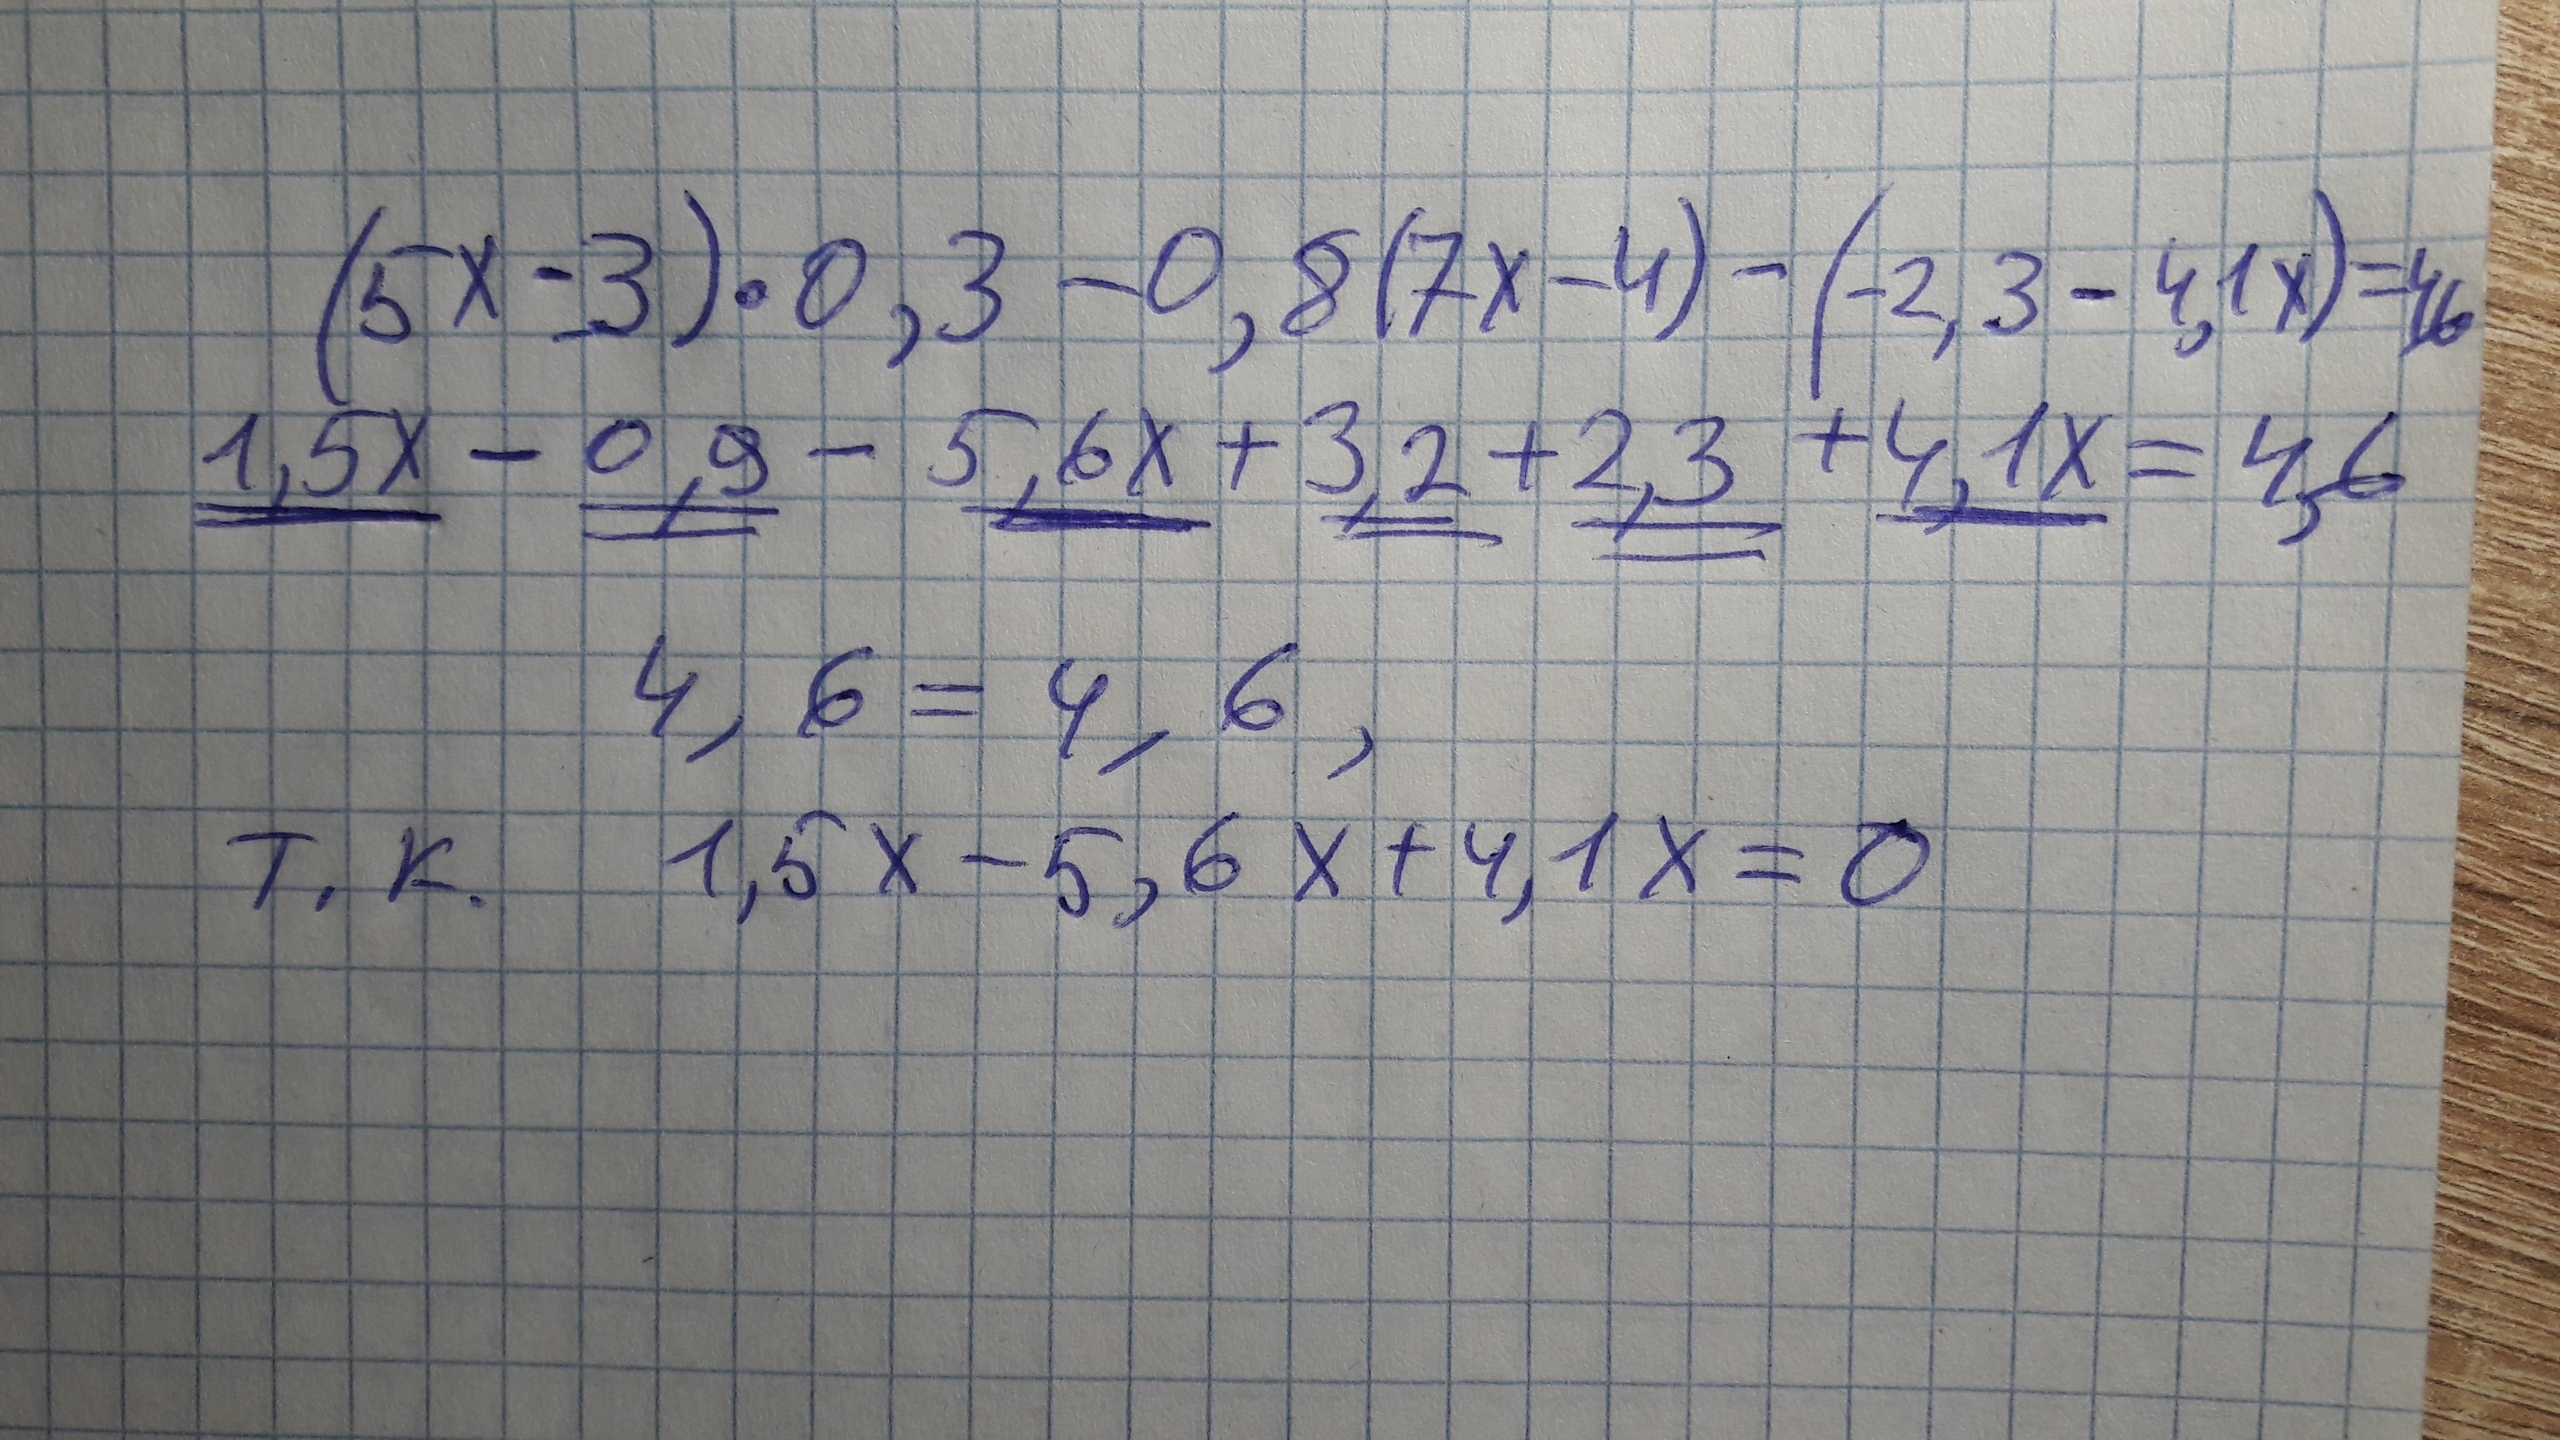 (5x-3)·0,3-0,8(7x-4)-(-2,3-4,1x)=4,6
1,5x-0,9-5,6x+3,2+2,3+4,1x=4,6
4,6=4,6,
т.к. 1,5x-5,6x+4,1x=0